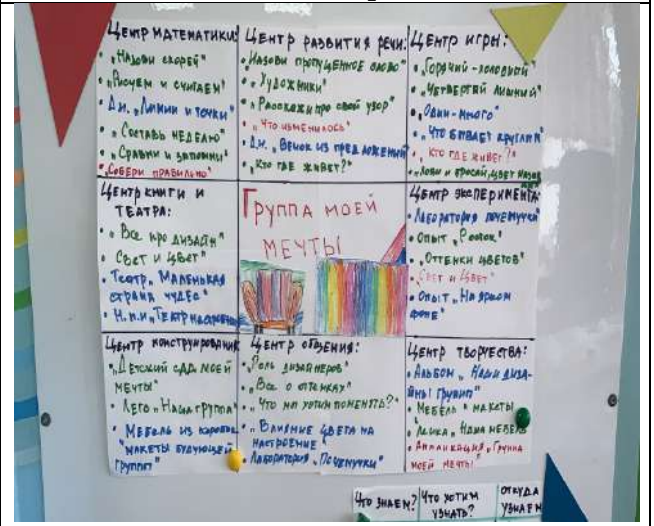 Центр математики:
• „Назови скорей"
• „Рисуем и считаем"
• Д.и. „Линии и точки"
• „Составь неделю"
• „Сравни и запомни"
• „Собери правильно"
Центр развития речи:
• „Назови пропущенное слово"
• „Художники"
• „Расскажи про свой узор"
• „Что изменилось"
• Д.и. „Венок из предложений"
• „Кто где живёт?"
Центр игры:
• „Горячий-холодный"
• „Четвёртый лишний"
• „Один-много"
• „Что бывает круглым"
• „Кто где живёт?"
• „Лови и бросай, цвет назов
Центр книги и
театра:
• „Все про дизайн"
• „Свет и цвет"
• Театр „Маленькая
страна чудес"
• Н.п.и „Театр
Группа моей
мечты
Центр эксперимента:
• Лаборатория почемучки
• Опыт „Росток"
• „Оттенки цветов"
• „Свет и цвет"
• Опыт „На ярком
фоне"
Центр конструирования
• „Детский сад моей
мечты"
• Лего „Наша группа"
• Мебель из коробок
"макеты будующей
группы"
Центр общения:
• „Роль дизайнеров"
• „Все о оттенках"
• „Что мы хотим поменять?"
• „Влияние цвета на
настроение"
• Лаборатория „Почемучки"
Центр творчества:
• Альбом „Наши дизай-
ны групп"
• Мебель „макеты
• Лепка „Наша мебель
• Аппликация „Группа
моей мечты"
Что знаем?
Что хотим
узнать?
Откуда
узнаем